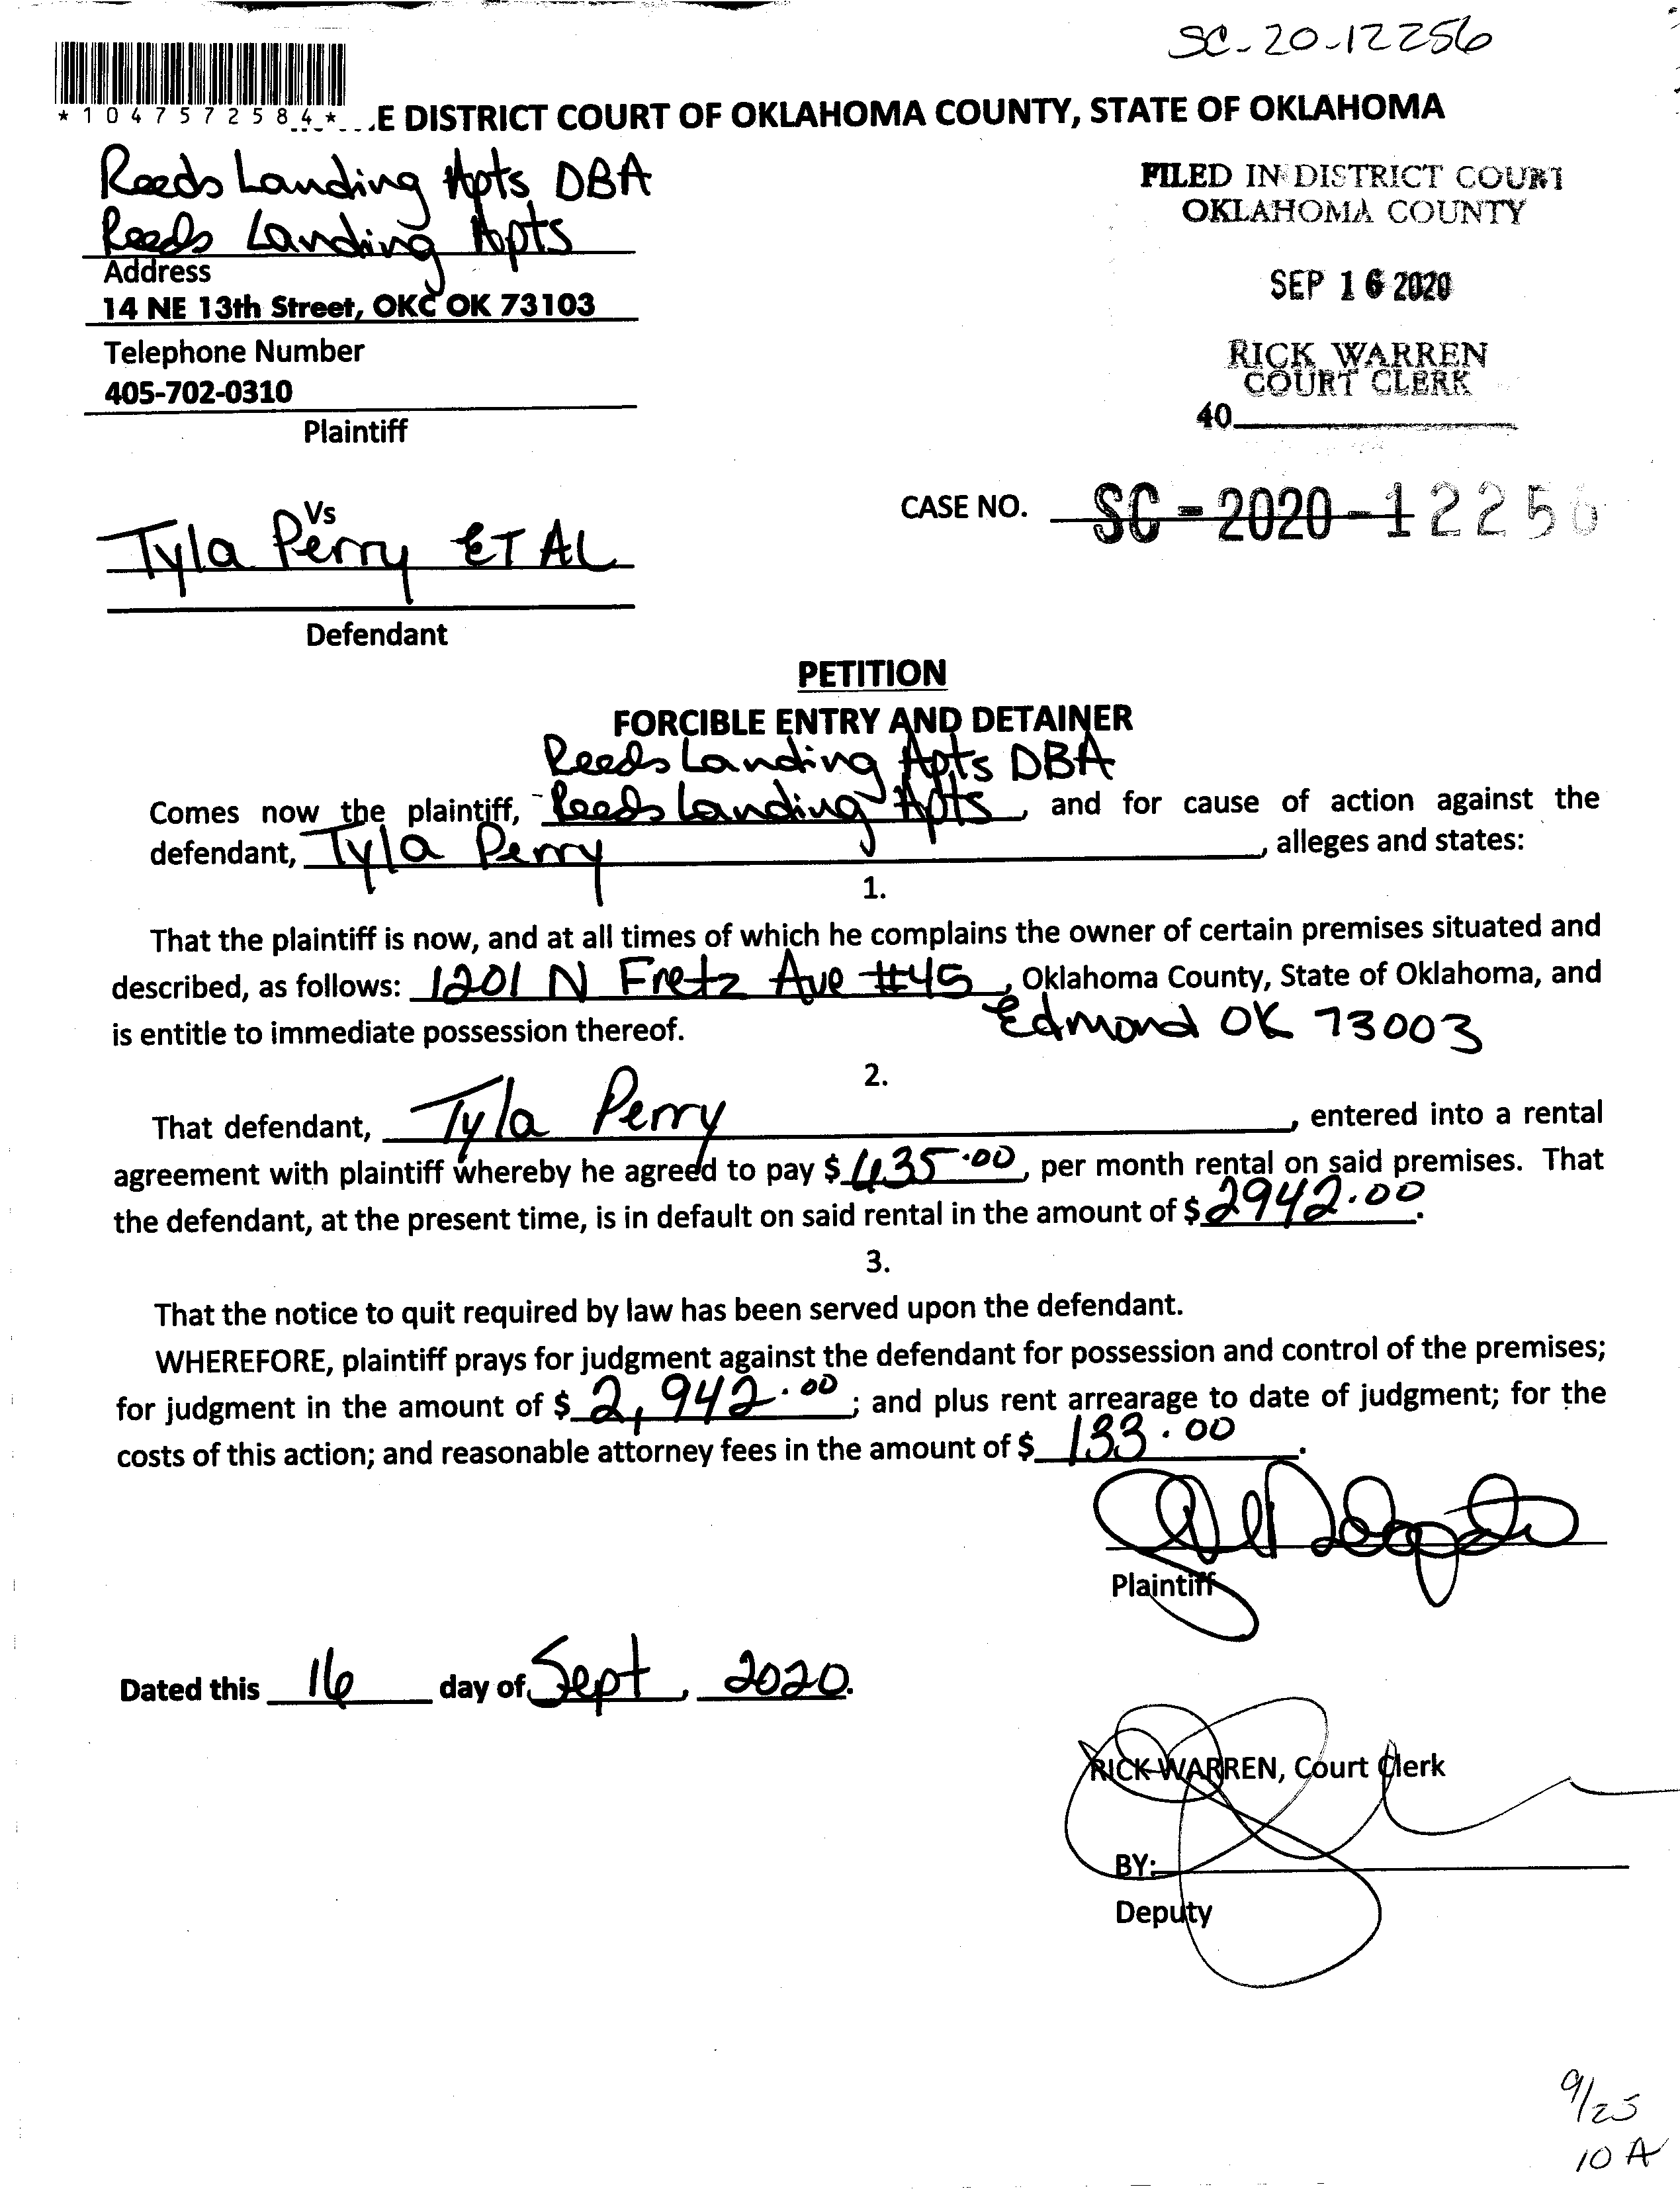 SC-20-12256
*1047572584*
E DISTRICT COURT OF OKLAHOMA COUNTY, STATE OF OKLAHOMA
Reeds Landing Apts DBA
Reeds Landing Apts
Address
14 NE 13th Street, OKC OK 73103
Telephone Number
405-702-0310
Plaintiff
FILED IN DISTRICT COURT
OKLAHOMA COUNTY
SEP 16 2020
RICK WARREN
COURT CLERK
40
Vs
Tyla Perry ET AL
Defendant
CASE NO. SC-2020-12256
PETITION
FORCIBLE ENTRY AND DETAINER
Reeds Landing Apts DBA
Comes now the plaintiff, Reeds Landing Apts, and for cause of action against the
defendant, Tyla Perry, alleges and states:
1.
That the plaintiff is now, and at all times of which he complains the owner of certain premises situated and
described, as follows: 1201 N Fretz Ave #45, Oklahoma County, State of Oklahoma, and
is entitle to immediate possession thereof. Edmond OK 73003
2.
That defendant, Tyla Perry, entered into a rental
agreement with plaintiff whereby he agreed to pay $ 635.00, per month rental on said premises. That
the defendant, at the present time, is in default on said rental in the amount of $ 2942.00.
3.
That the notice to quit required by law has been served upon the defendant.
WHEREFORE, plaintiff prays for judgment against the defendant for possession and control of the premises;
for judgment in the amount of $ 2,942.00; and plus rent arrearage to date of judgment; for the
costs of this action; and reasonable attorney fees in the amount of $ 133.00.
Plaintiff
Dated this 16 day of Sept, 2020.
RICK WARREN, Court Clerk
BY:
Deputy
9/25
10 A